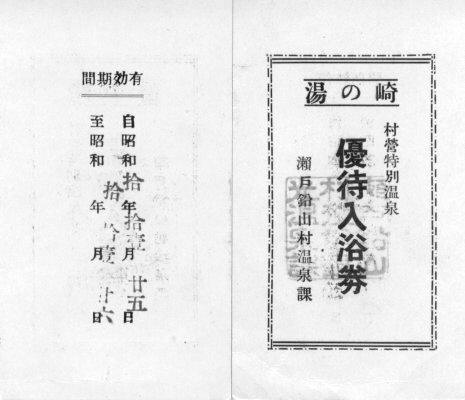 崎の湯
村營特別温泉
優待入浴劵
瀨戸鉛山村温泉課
有効期間
自昭和拾年拾壹月廿五日
至昭和拾年拾壹月廿六日